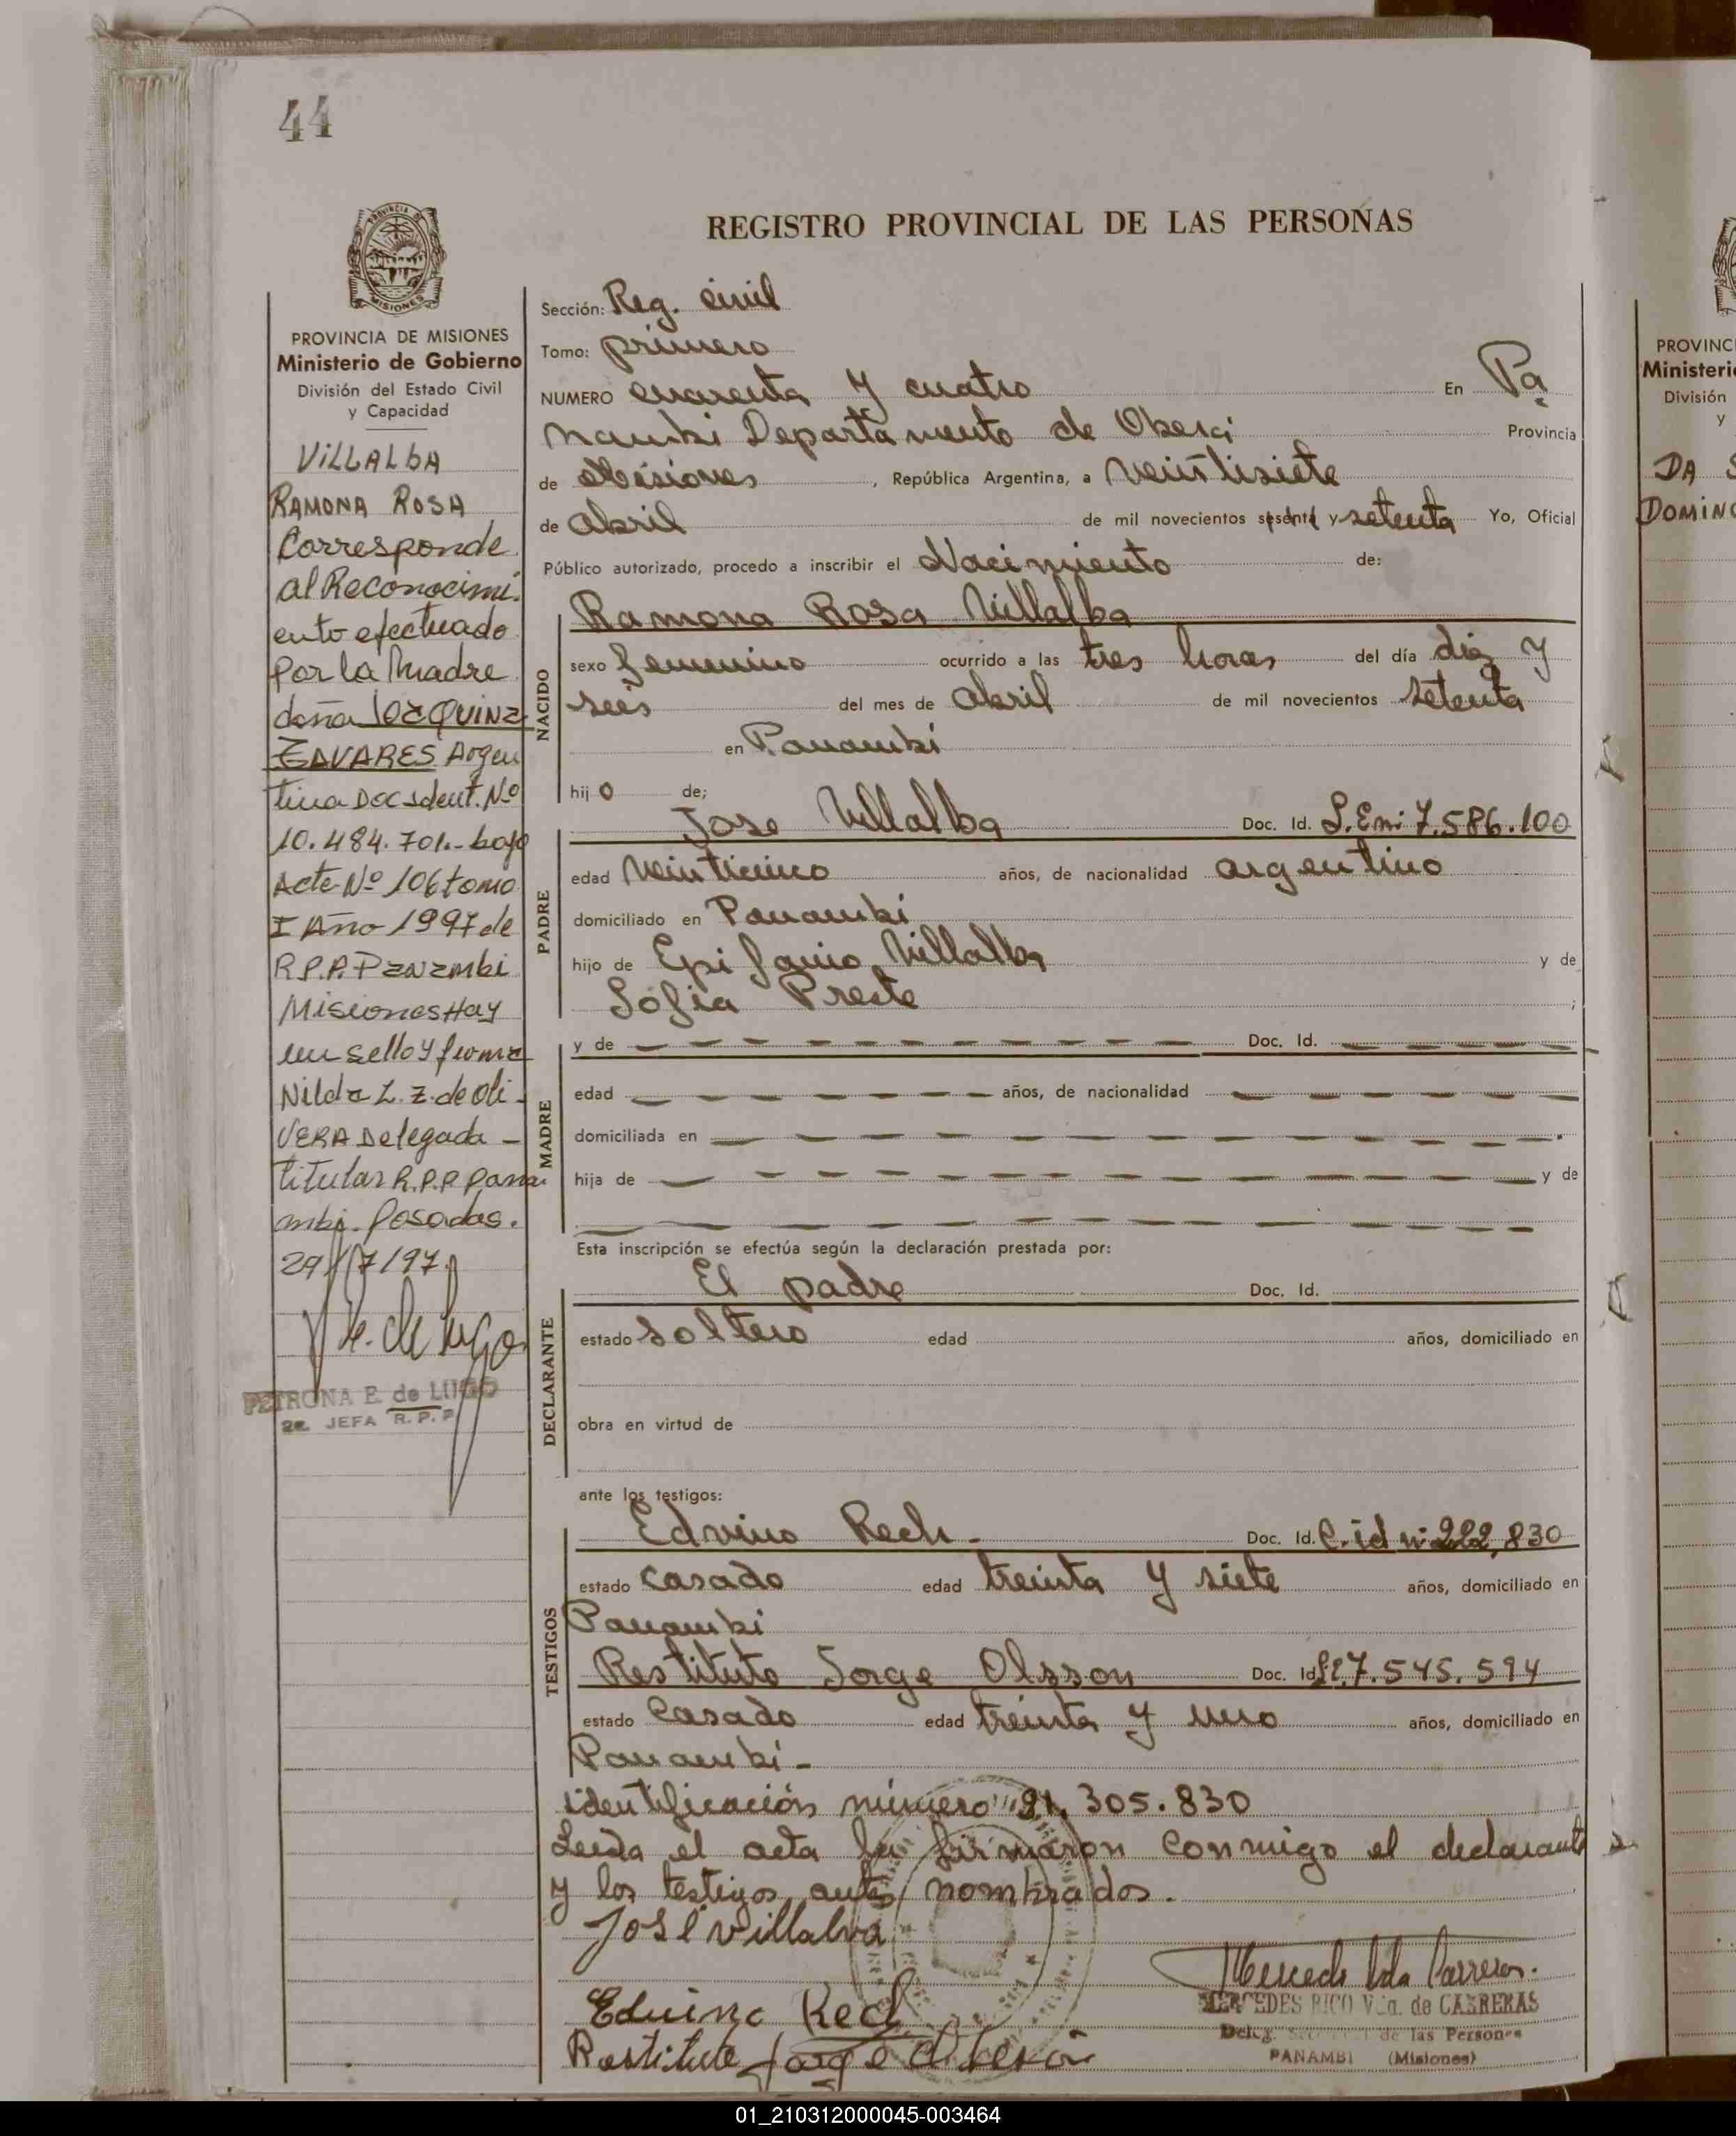 44
REGISTRO PROVINCIAL DE LAS PERSONAS
PROVINCIA DE MISIONES
Ministerio de Gobierno
División del Estado Civil
y Capacidad
VILLALBA
RAMONA ROSA
Corresponde
al Reconocimi.
ento efectuado
por la Madre
doña JOAQUINA
TAVARES Argen
tina Doc Ident. Nº
10.484.701.- bajo
Acta Nº 106 tomo
I Año 1997 de
R.P.P. Panambi
Misiones Hay
un sello y firma
Nilda L. Z. de Oli-
VERA Delegada -
titular R.P.P Pana
mbi. Posadas.
29/7/97
PETRONA E. de LUGO
2a. JEFA R.P.P
Sección: Reg. civil
Tomo: primero
NUMERO cuarenta y cuatro En Pa
nambi Departamento de Obera Provincia
de Misiones, República Argentina, a veintisiete
de abril de mil novecientos sesenta y setenta Yo, Oficial
Público autorizado, procedo a inscribir el Nacimiento de:
NACIDO
Ramona Rosa Villalba
sexo femenino ocurrido a las tres horas del día diez y
seis del mes de abril de mil novecientos setenta
en Panambi
hijo de;
PADRE
Jose Villalba Doc. Id. L.E.n: 7.586.100
edad veinticinco años, de nacionalidad argentino
domiciliado en Panambi
hijo de Epifanio Villalba y de
Sofia Preste ;
MADRE
y de — — — — — — — — — — Doc. Id. — — — — —
edad — — — — — — — años, de nacionalidad — — — — —
domiciliada en — — — — — — — — — — —
hija de — — — — — — — — — — — y de
— — — — — — — — — — — — —
Esta inscripción se efectúa según la declaración prestada por:
DECLARANTE
El padre Doc. Id.
estado soltero edad años, domiciliado en
obra en virtud de
ante los testigos:
TESTIGOS
Edvino Rech - Doc. Id. C.id n: 222,830
estado casado edad treinta y siete años, domiciliado en
Panambi
Restituto Jorge Olsson Doc. Id 7.545.594
estado casado edad treinta y uno años, domiciliado en
Panambi -
identificación número 305.830
Leida el acta la firmaron conmigo el declarante
y los testigos antes nombrados.
José Villalva
Eduino Rech
Restituto Jorge
MERCEDES RICO Vda. de CARRERAS
Deleg. de las Personas
PANAMBI (Misiones)
PROVINC
Ministeri
División
y
DA S
DOMING
01_210312000045-003464